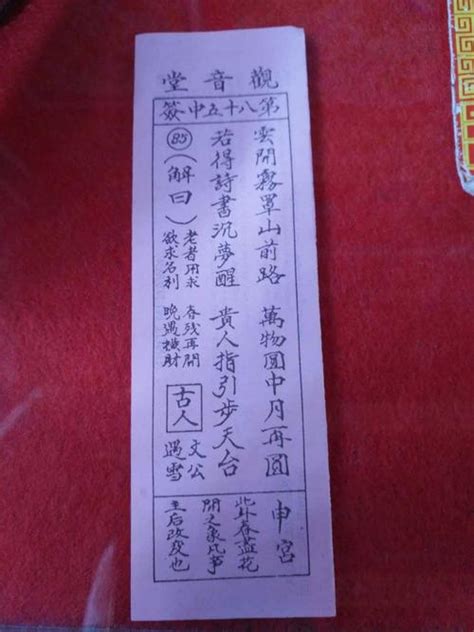 觀音堂
第八十五中簽
雲開霧罩山前路 萬物圓中月再圓
若得詩書沉夢醒 貴人指引步天台
85（解曰）
老者用求 春残再開
欲求名利 晚遇横財
古人
文公
遇雪
申宮
此卦春盡花
開之象凡事
主后改变也